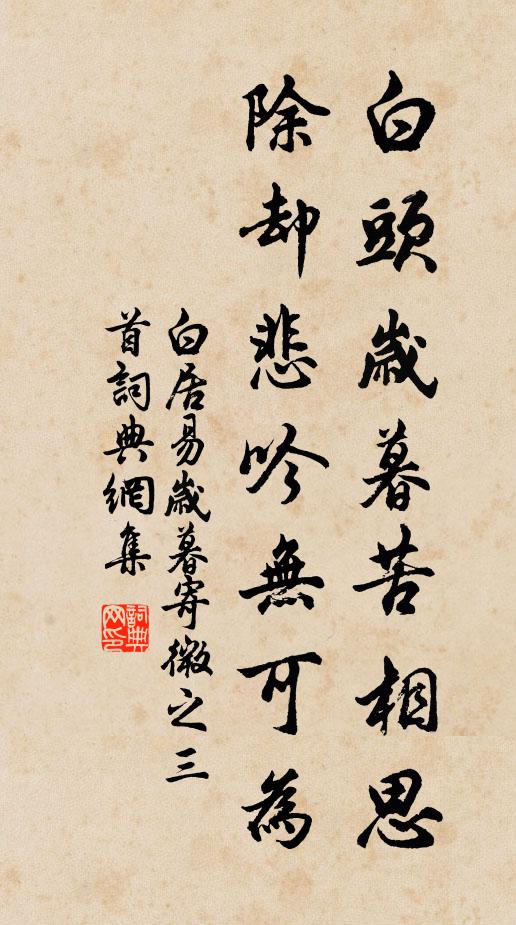 白頭歲暮苦相思
除却悲吟無可為
白居易歲暮寄微之三
首詞典網集
詞典網印